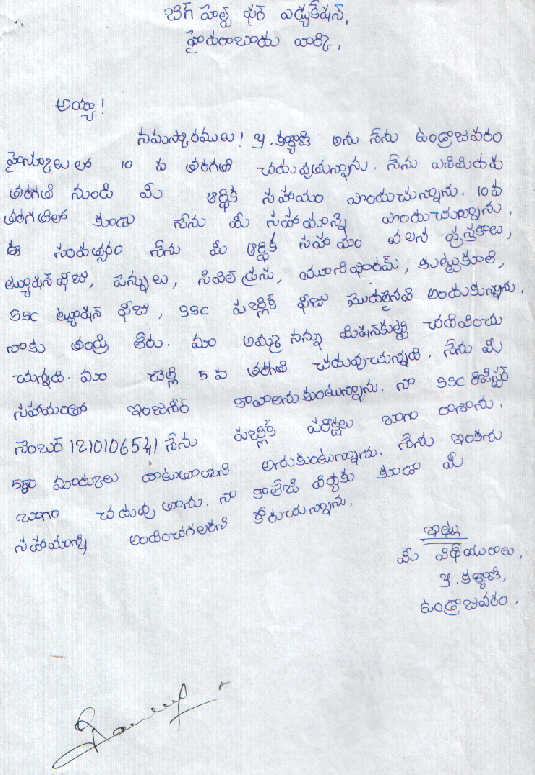 బిగ్ హెల్ప్ ఫర్ ఎడ్యుకేషన్,
హైదరాబాదు వారికి,
అయ్యా!
నమస్కారములు! Y. కళ్యాణి అను నేను ఉండ్రాజవరం
హైస్కూలులో 10 వ తరగతి చదువుచున్నాను. నేను ఎనిమిదవ
తరగతి నుండి మీ ఆర్థిక సహాయం పొందుచున్నాను. 10వ
తరగతిలో కూడా నేను మీ సహాయాన్ని పొందుచున్నాను.
ఈ సంవత్సరం నేను మీ ఆర్థిక సహాయం వలన పుస్తకాలు,
ట్యూషన్ ఫీజు, పెన్నులు, సివిల్ డ్రస్సు, యూనిఫారమ్, కుట్టుకూలి,
SSC ట్యూషన్ ఫీజు, SSC పబ్లిక్ ఫీజు మొదలైనవి అందుకున్నాను.
నాకు తండ్రి లేరు. మా అమ్మ నన్ను మిషనుకుట్టి చదివించు
చున్నది. మా చెల్లి 5 వ తరగతి చదువుచున్నది. నేను మీ
సహాయంతో ఇంజనీర్ కావాలనుకుంటున్నాను. నా SSC రిజిస్టర్
నెంబర్ 1210106541 నేను పబ్లిక్ పరీక్షలు బాగా రాశాను.
580 మార్కులు దాటుతాయని అనుకుంటున్నాను. నేను ఇంకను
బాగా చదువుతాను. నా కాలేజీ విద్యకు కూడా మీ
సహాయాన్ని అందించగలరని కోరుచున్నాను.
ఇట్లు
మీ విధేయురాలు,
Y. కళ్యాణి,
ఉండ్రాజవరం.